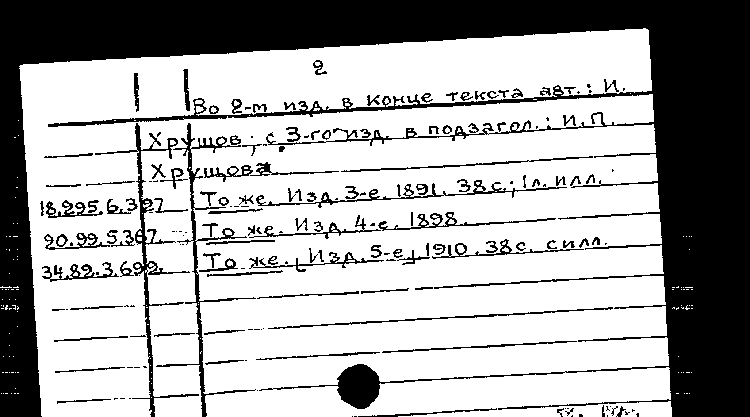 2
Во 2-м изд. в конце текста авт.: И.
Хрущов; с 3-го изд. в подзагол.: И.П.
Хрущова.
18.295.6.327 То же. Изд. 3-е. 1891. 38 с.; 1 л. илл.
20.99.5.367. То же. Изд. 4-е. 1898.
34.82.3.699. То же. [Изд. 5-е] 1910. 38 с. с илл.